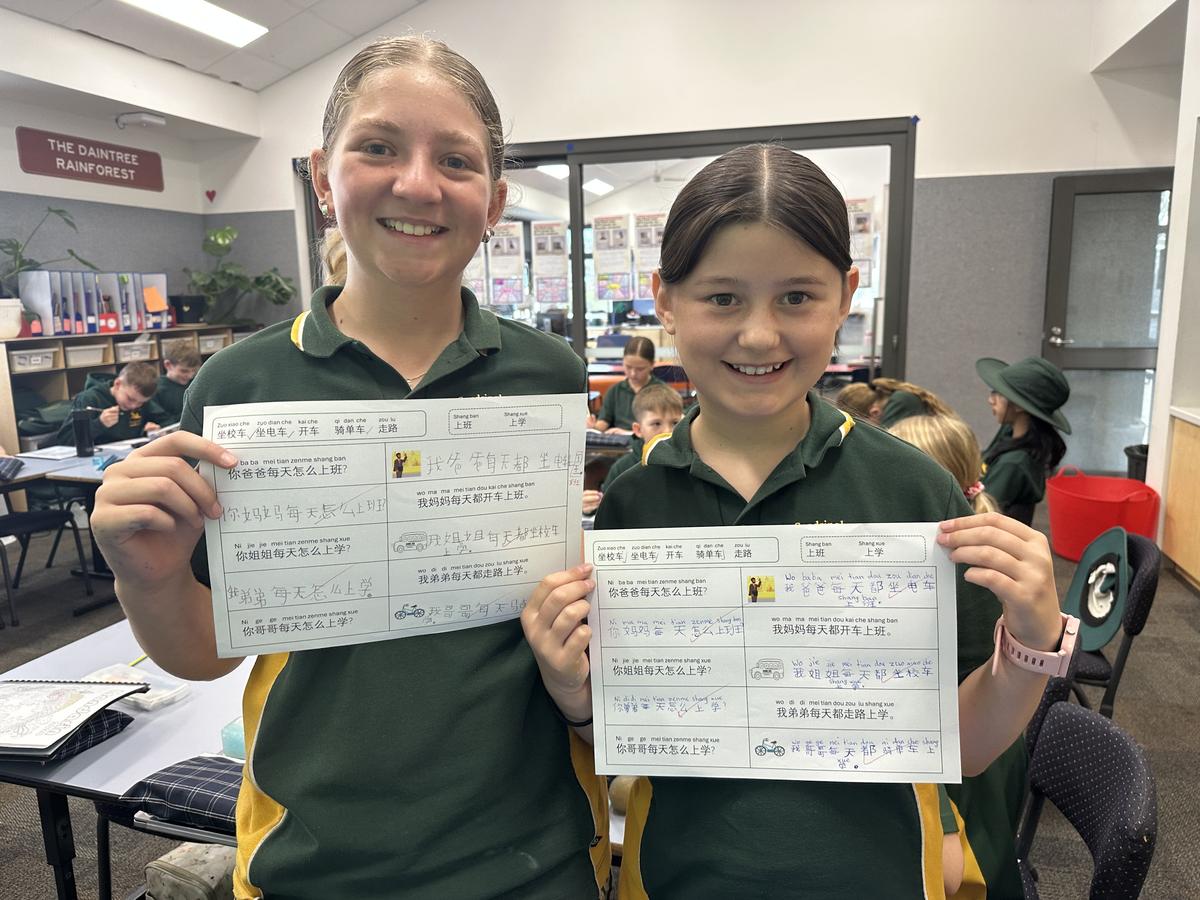 THE DAINTREE
RAINFOREST
Zuo xiao che zuo dian che kai che qi dan che zou lu
坐校车 坐电车 开车 骑单车 走路
Shang ban Shang xue
上班 上学
ba ba mei tian zenme shang ban
你爸爸每天怎么上班?
我爸爸每天都坐电
你妈妈每天怎么上班
wo ma ma mei tian dou kai che shang ban
我妈妈每天都开车上班。
Ni jie jie mei tian zenme shang xue
你姐姐每天怎么上学?
我姐姐每天都坐校车
上学。
我弟弟每天怎么上学。
wo di di mei tian dou zou lu shang xue
我弟弟每天都走路上学。
Ni ge ge mei tian zenme shang xue
你哥哥每天怎么上学?
我哥哥每天
Zuo xiao che zuo dian che kai che qi dan che zou lu
坐校车 坐电车 开车 骑单车 走路
Shang ban Shang xue
上班 上学
Ni ba ba mei tian zenme shang ban
你爸爸每天怎么上班?
Wo ba ba mei tian dou zuo dian che
我爸爸每天都坐电车
shang ban
上班。
Ni ma ma mei tian zenme shang ban
你妈妈每天怎么上班
我妈妈每天都开车上班。
Ni jie jie mei tian zenme shang xue
你姐姐每天怎么上学?
Wo jie jie mei tian dou zuo xiao che
我姐姐每天都坐校车
shang xue
上学。
Ni di di mei tian zenme shang xue
你弟弟每天怎么上学?
wo di di mei tian dou zou lu shang xue
我弟弟每天都走路上学。
Ni ge ge mei tian zenme shang xue
你哥哥每天怎么上学?
wo ge ge mei tian dou dan che shang
我哥哥每天都骑单车上
xue
学。